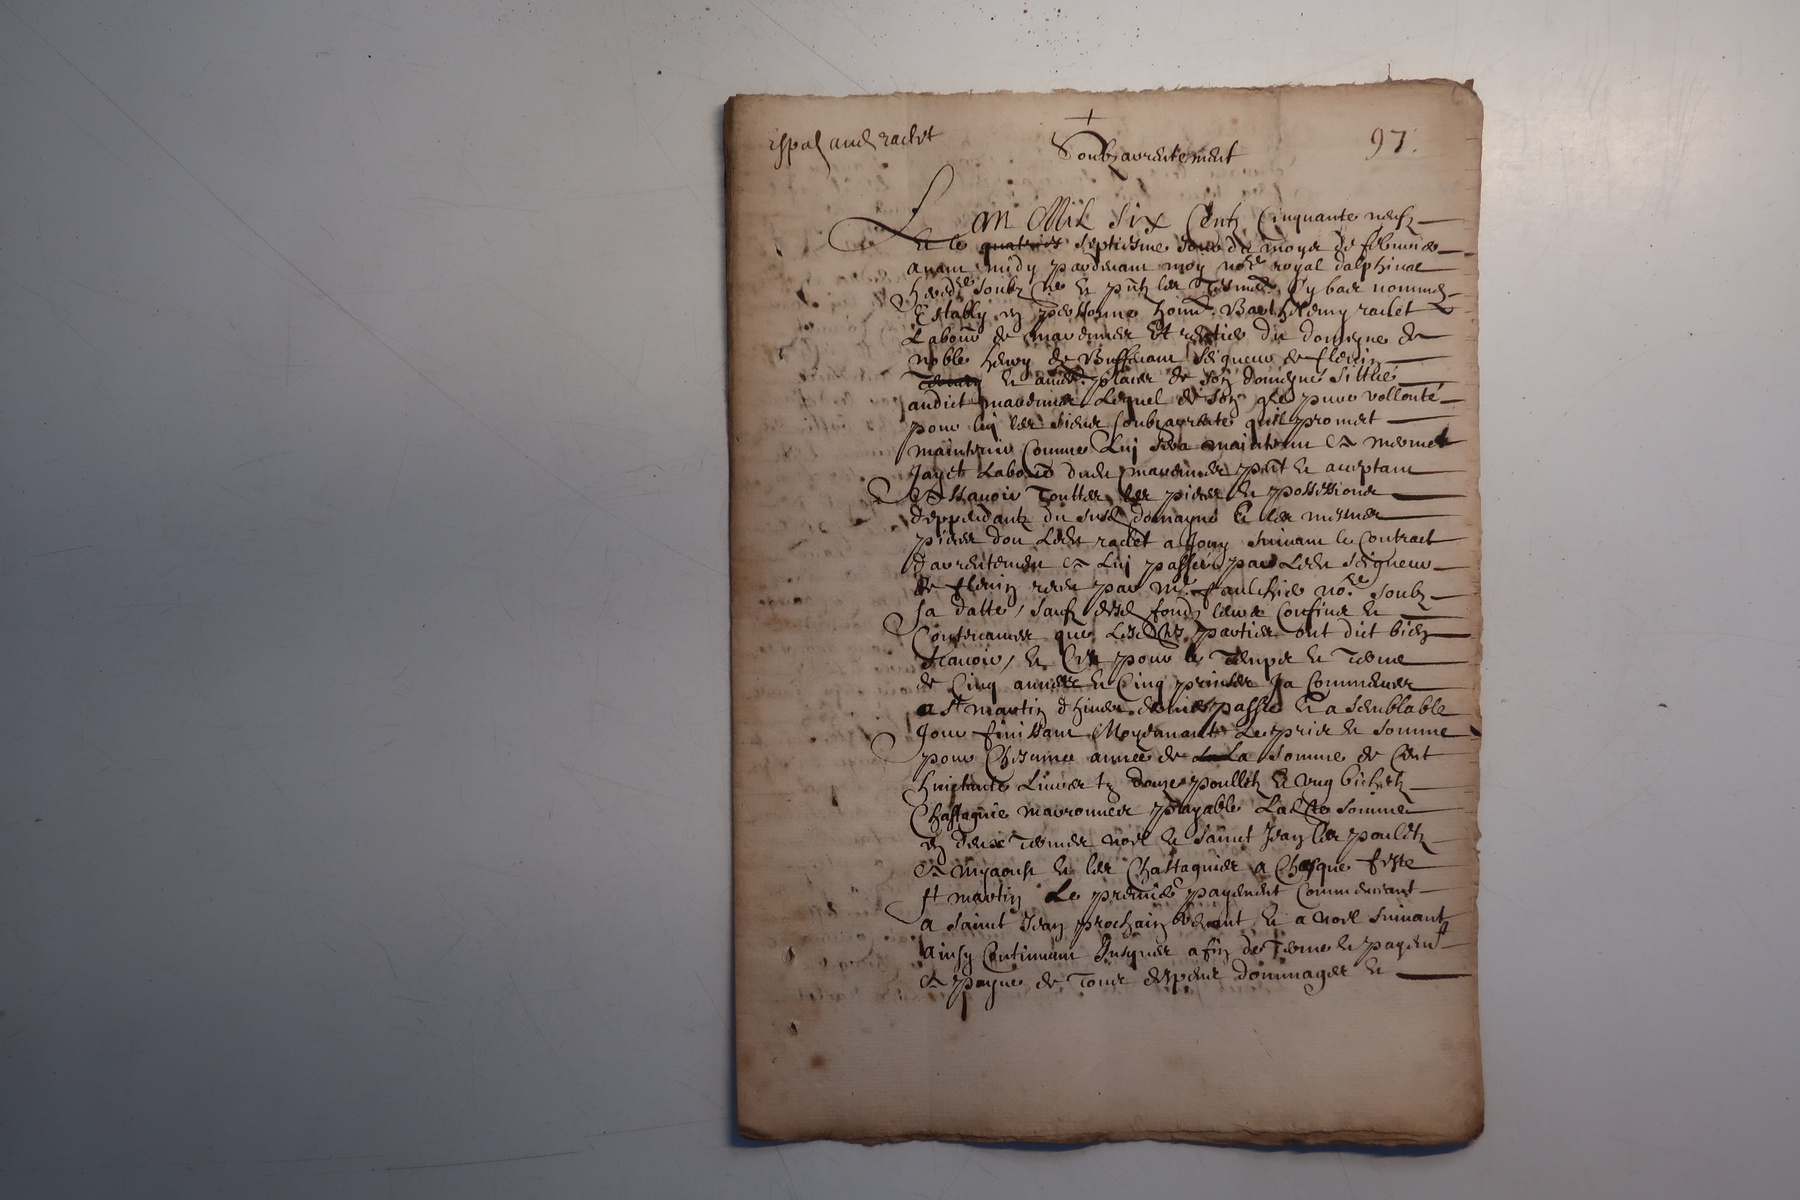 Soubzarentement
97.
Lan Mil Six Centz Cinquante neufz
Et le quatries septiesme jour du moys de febvrier
avant midy pardevant moy no.re royal dalphinal
soubz.ne et pntz les tesmo. cy bas nommez
Estably en personne hon. Barthelemy raclet
Labour de et rentier du domeyne de
noble henry de Buffevant seigneur de flevin
et autres places de son domeyne sittué
audict Lequel de son gre pure vollonté
pour luy les siens soubzarente quil promet
maintenir comme luy sera maintenu a mermet
Jayet Labour dud. pnt et aceptant
Assavoir Touttes les pieces et possessions
deppendantz du susd. domayne et les mesmes
pieces dont Ledt raclet a Jouy suivant le Contract
darentement a Luy passé par Ledt seigneur
de flevin receu par Me no.re soubz
sa datte, sauf desd. fondz leurs Confins et
Contenances que Lesd. parties ont dict bien
scavoir, et Ce pour le Temps et Terme
de Cinq annees et Cinq prinses Ja Commences
a St martin dhiver dernier passé et a semblable
Jour finissant Moyenant Le pris et somme
pour Chescune annee de La somme de Cent
huictante Livres tz douze poulletz et ung bichetz
Chastagnes marronnes payable Ladte somme
en deux Termes noel et Sainct Jean les pouletz
a myaoust et les Chastagnes a Chasque feste
st martin Le premier payement Commencant
a Sainct Jean prochain venant et a noel suivant
Ainsy Continuant Jusques a fin de Terme et payemt
a payne de Tous despens dommages et